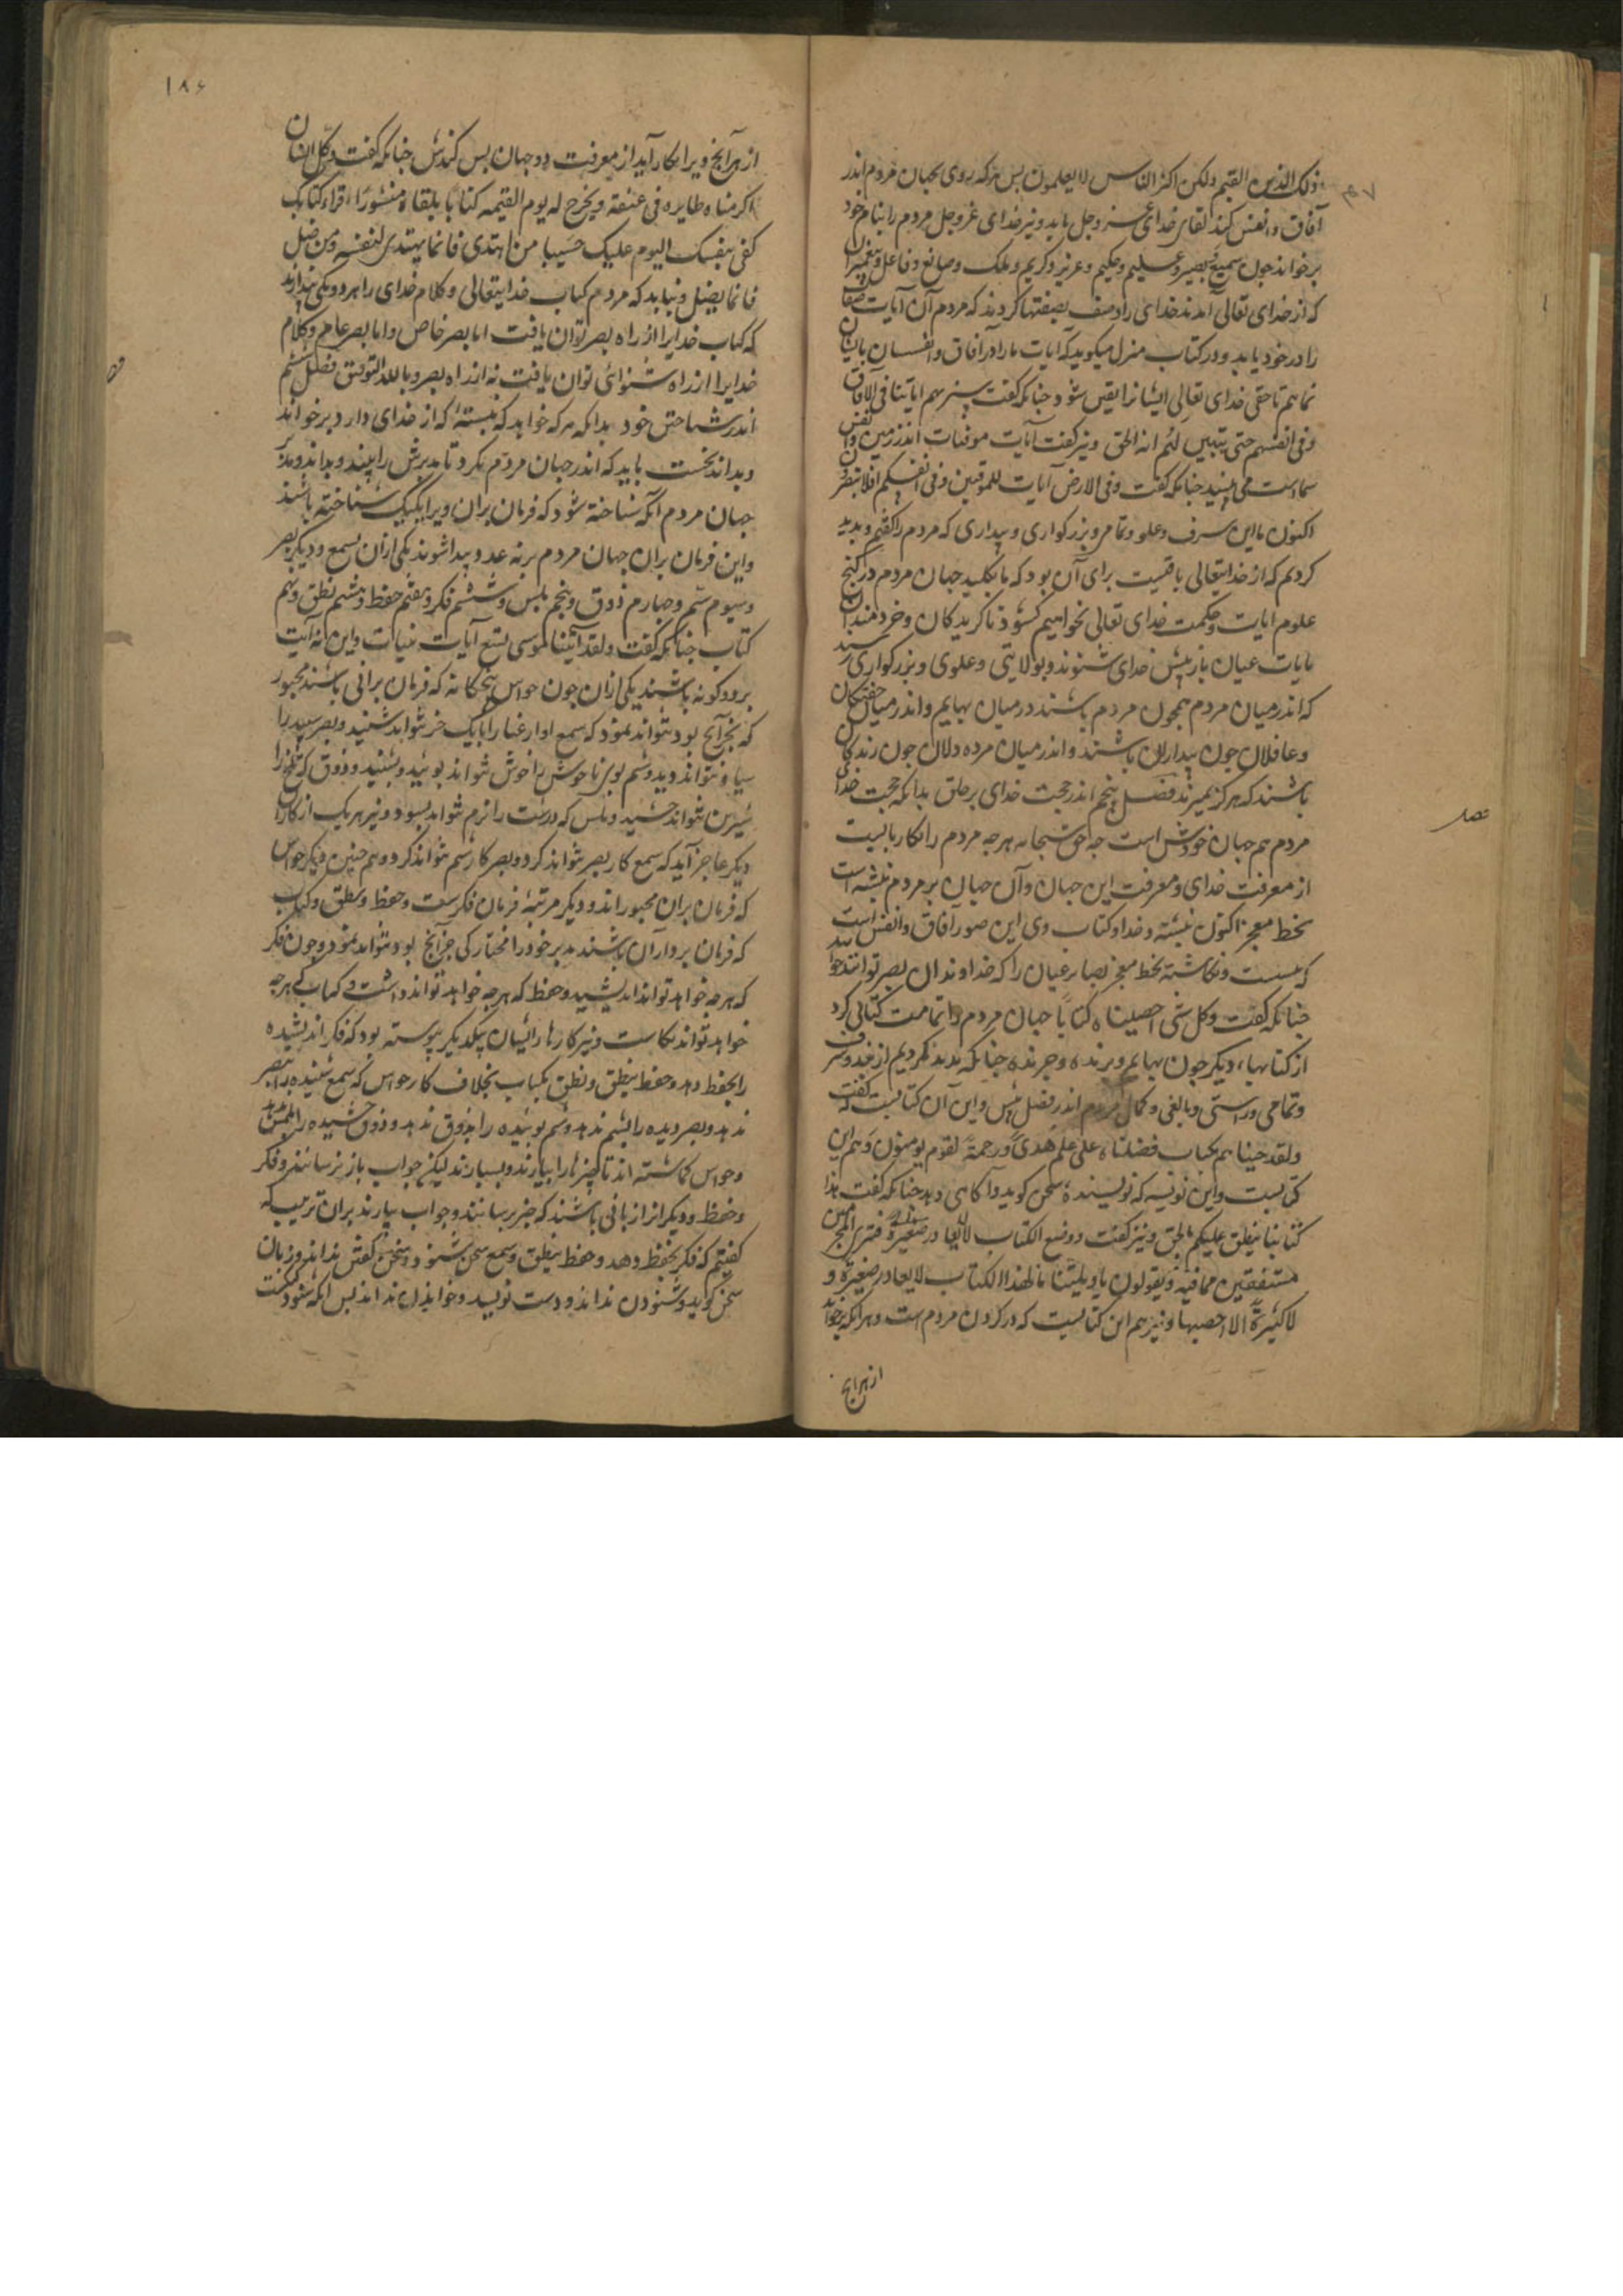 ذلك الدین القیم ولكن اكثر الناس لا یعلمون پس هركه روی بجهان مردم اندر
آفاق و انفس كند لقای خدای عز وجل یابد و نیز خدای عز وجل مردم را بنام خود
برخواند چون سمیع و بصیر و علیم و حكیم و عزیز و كریم و ملك و صانع و فاعل و پیغمبران
كه از خدای تعالی آمدند خدای را وصف بصفتها كردند كه مردم آن آیات صفات
را در خود یابد و در كتاب منزل میگوید كه آیات ما را در آفاق و انفسسان بایشان
نمائیم تا حقی خدای تعالی ایشانرا یقین شود چنانكه گفت سنریهم ایاتنا فی الآفاق
وفی انفسهم حتی یتبین لهم انه الحق و نیز گفت آیات موقنات اندر زمین و انفس
شماست می نبینید چنانكه گفت وفی الارض آیات للموقنین وفی انفسكم افلا تبصرون
اكنون با این شرف و علو و تمامی و بزرگواری و بیداری كه مردم را گفتیم و پدید
كردیم كه از خدایتعالی یافتست برای آن بود كه تا بكلید جهان مردم در گنج
علوم ایات و حكمت خدای تعالی بخواهیم گشود تا گزیدگان و خردمندان
بایات عیان باز پیش خدای شنوند و بولایتی و علوی و بزرگواری رسند
كه اندر میان مردم همچون مردم باشند در میان بهایم و اندر میان خفتگان
و غافلان چون بیداران باشند و اندر میان مرده دلان چون زندگان
باشند كه هرگز نمیرند فصل پنجم اندر حجت خدای بر خلق بدانكه حجت خدا
مردم هم جهان خودش است چه حق سبحانه هرچه مردم را بكار بایست
از معرفت خدای و معرفت این جهان و آن جهان بر مردم نبشته است
بخط معجز اكنون نبشته و خدا و كتاب وی این صور آفاق و انفس است
كه هست و نگاشته بخط معجز بصار عیان را كه خداوندان بصر توانند خواند
چنانكه گفت وكل شی احصیناه كتابا جهان مردم را تمامت كتابی كرد
از كتابهاء دیگر چون بهایم و پرنده و چرنده چنانكه پدید كردیم از حد و شرف
و تمامی و راستی و بالغی و كمال مردم اندر فصل پیش و این آن كتابیست كه گفت
ولقد جئناهم بكتاب فصلناه علی علم هدی ورحمة لقوم یومنون و هم این
كتابیست و این نویسه كه نویسنده سخن گوید و آگاهی دهد چنانكه گفت هذا
كتابنا ینطق علیكم بالحق و نیز گفت ووضع الكتاب فتری المجرمین
مشفقین مما فیه ویقولون یا ویلتنا مال هذا الكتاب لا یغادر صغیرة و
لا كبیرة الا احصیها و نیز هم این كتابیست كه در گردن مردم است و هرانكه برخواند
از هرانچ
فصل
۱۸۶
از هرآنچ ویرا بكار آید از معرفت دو جهان بس كندش چنانكه گفت وكل انسان
الزمناه طایره فی عنقه ویخرج له یوم القیمه كتابا یلقاه منشورا اقراء كتابك
كفی بنفسك الیوم علیك حسیبا من اهتدی فانما یهتدی لنفسه ومن ضل
فانما یضل و نباید كه مردم كتاب خدایتعالی و كلام خدای را هر دو یكی پندارند
كه كتاب خدایرا از راه بصر توان یافت اما بصر خاص و اما بصر عام و كلام
خدایرا از راه شنوائی توان یافت نه از راه بصر و بالله التوفیق فصل ششم
اندر شناختن خود بدانكه هركه خواهد كه نبشته‌ای كه از خدای دارد برخواند
و بداند نخست باید كه اندر جهان مردم نگرد تا مدبرش را ببیند و بداند و مدبر
جهان مردم آنگه شناخته شود كه فرمان بران ویرا یكیك شناخته باشند
و این فرمان بران جهان مردم بر نه عدد پیدا شوند یكی از آن سمع و دیگر بصر
و سیوم شم و چهارم ذوق و پنجم لمس و ششم فكر و هفتم حفظ و هشتم نطق و نهم
كتاب چنانكه گفت ولقد آتینا موسی تسع آیات بینات و این نه آیت
بر دو گونه باشند یكی از آن چون حواس پنجگانه كه فرمان برانی باشند مجبور
كه بجز آنچ بود نتواند نمود كه سمع آواز را بانگ خر نتواند شنید و بصر سپید را
سیاه نتواند دید و شم بوی ناخوش را خوش نتواند بوئید و شنید و ذوق كه تلخ را
شیرین نتواند چشید و لمس كه درشت را نرم نتواند بسود و نیز هر یك از كار
دیگر عاجز آید كه سمع كار بصر نتواند كرد و بصر كار شم نتواند كرد و هم چنین دیگر حواس
كه فرمان بران مجبوراند و دیگر مرتبهٔ فرمان فكرست و حفظ و نطق و كتاب
كه فرمان برداران باشند مدبر خود را مختار كی جز آنچ بود نتواند نمود و چون فكر
كه هرچه خواهد تواند اندیشید و حفظ كه هرچه خواهد تواند داشت و كتاب كه هرچه
خواهد تواند نگاشت و نیز كارهای ایشان بیكدیگر پیوسته بود كه فكر اندیشیده
را بحفظ دهد و حفظ بنطق و نطق بكتاب بخلاف كار حواس كه سمع شنیده را ببصر
ندهد و بصر دیده را بشم ندهد و شم بوئیده را بذوق ندهد و ذوق چشیده را بلمس ندهد
و حواس گماشته اند تا چیزها را بیارند و بسپارند لیكن جواب باز نرسانند و فكر
و حفظ و دیگر از آنانی باشند كه خبر برسانند و جواب بیارند بران ترتیب كه
گفتیم كه فكر بحفظ دهد و حفظ بنطق و سمع سخن شنود و سخن گفتن نداند و زبان
سخن گوید و شنودن نداند و دست نویسد و خواندن نداند پس آنكه